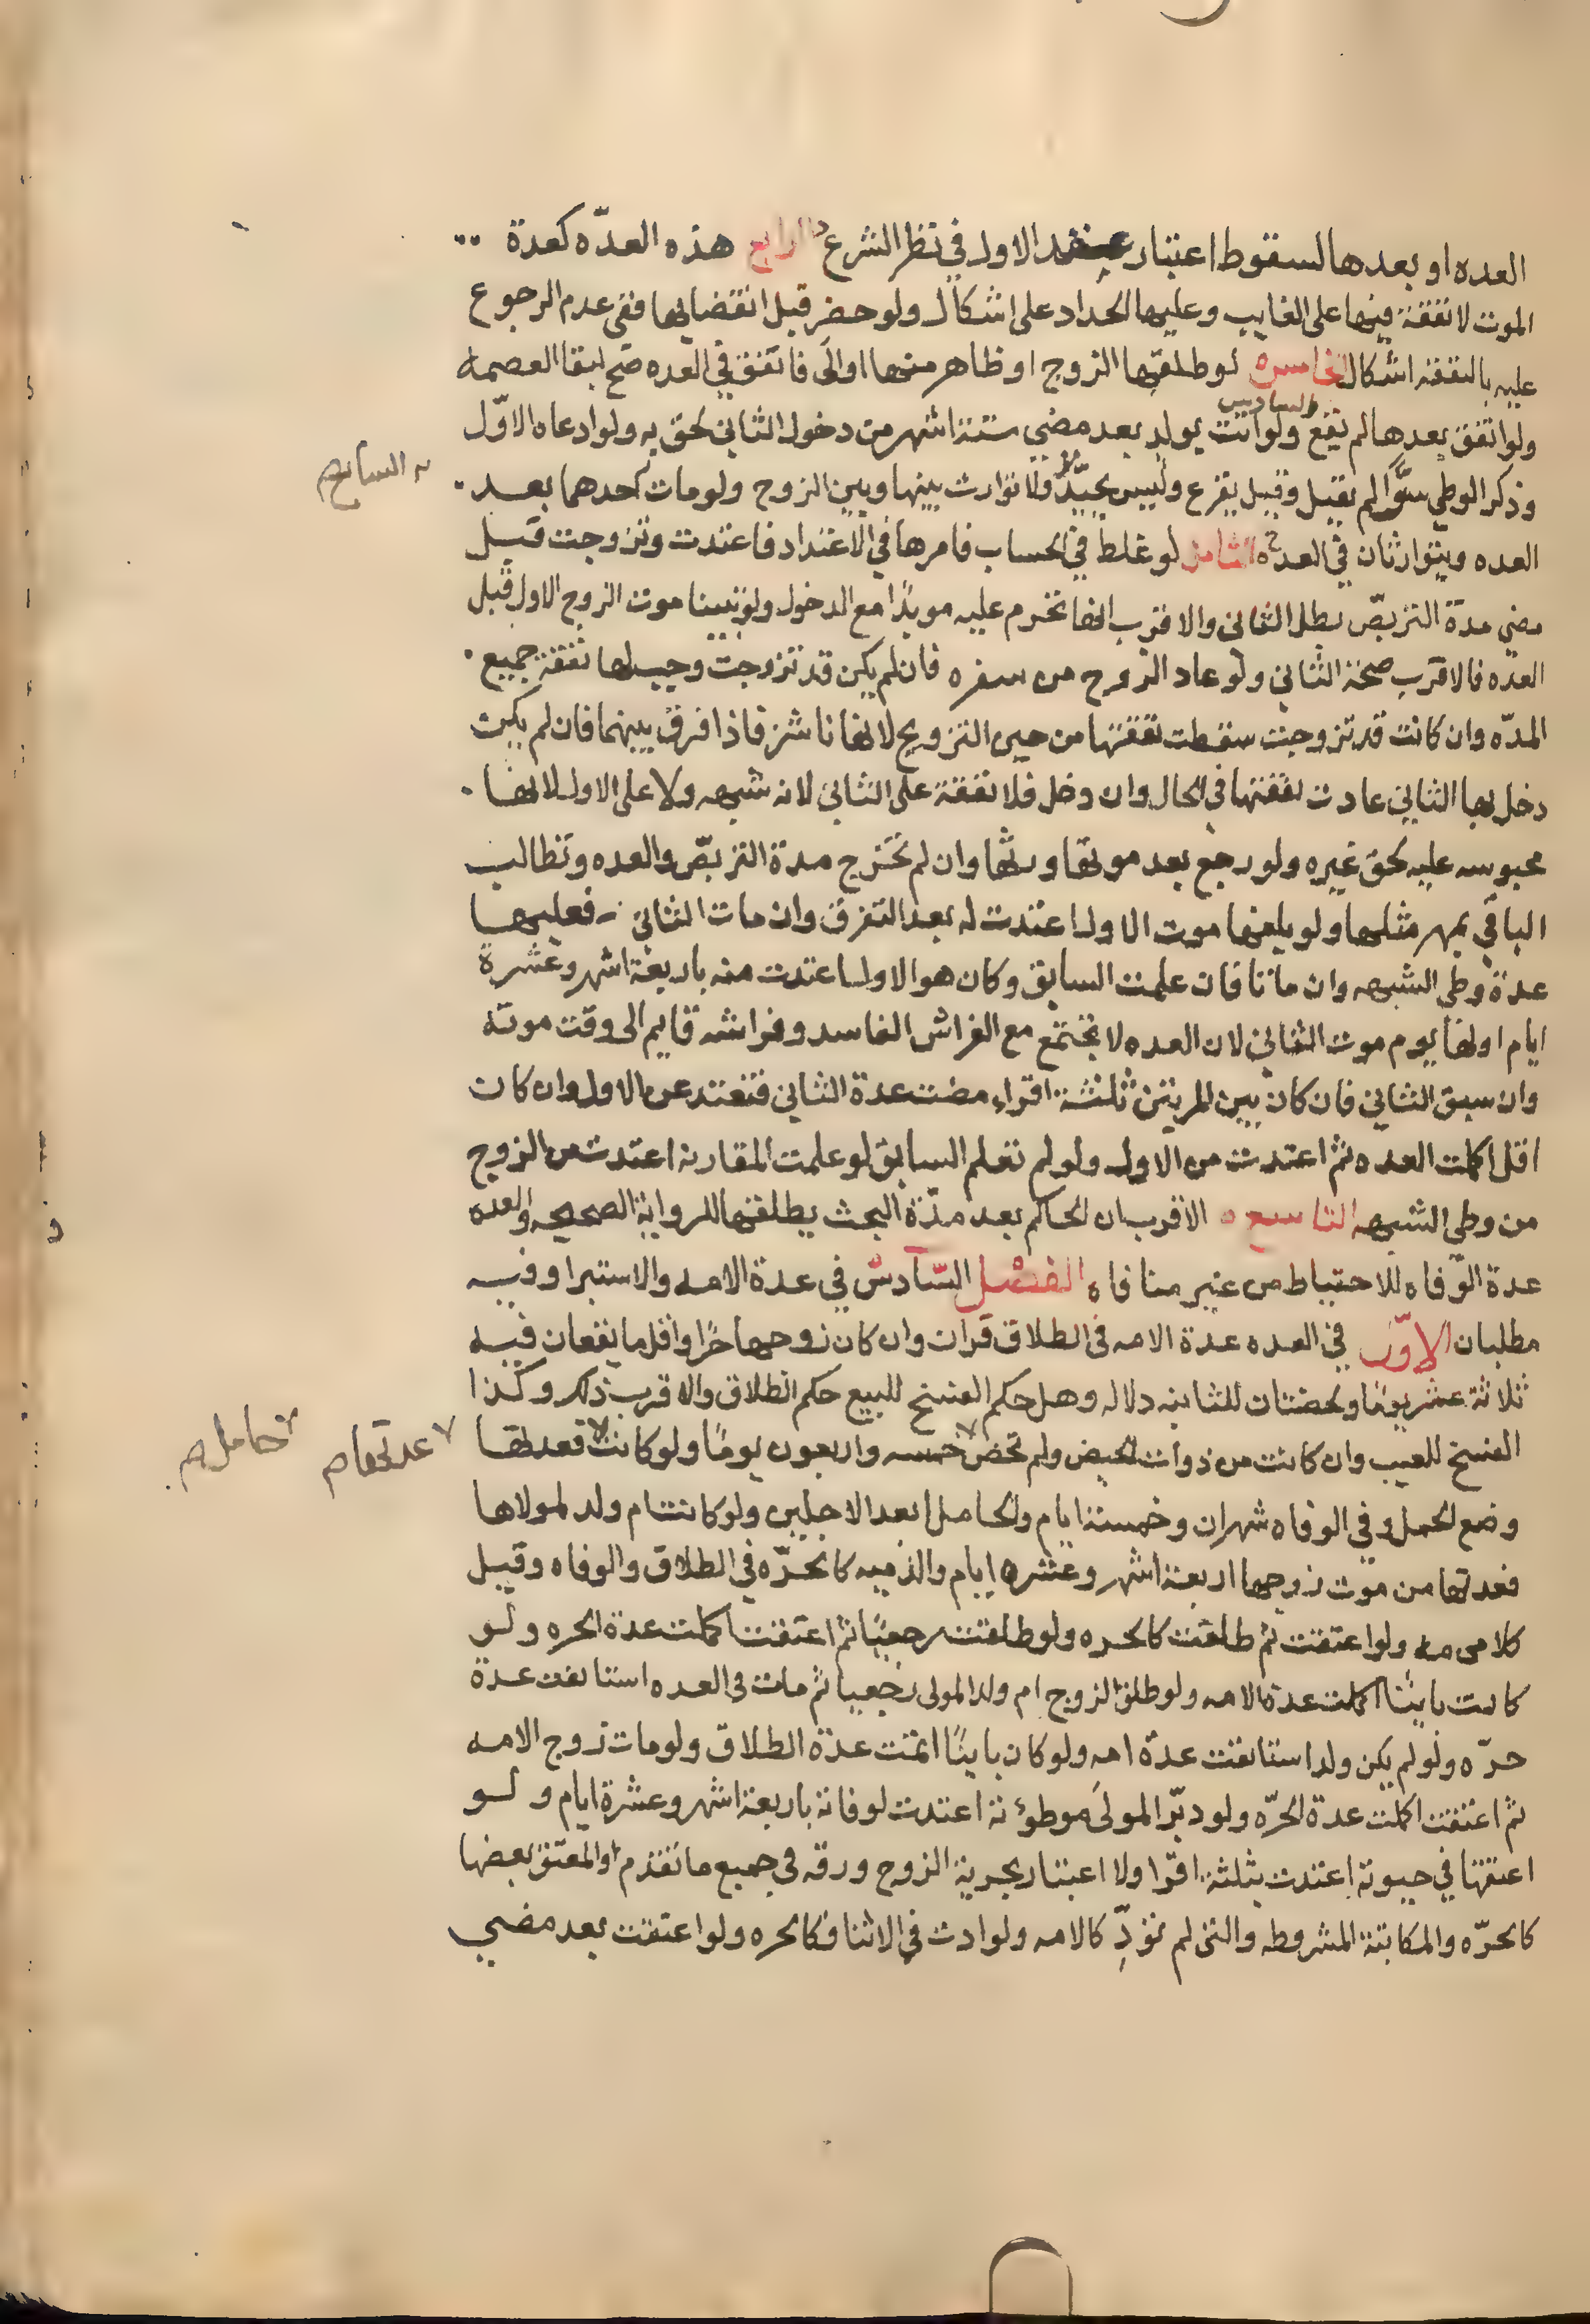 العده او بعدها لسقوط اعتبار عقد الاول في نظر الشرع د الرابع هذه العدّه كعدة
الموت لا نفقة فيها على الغايب وعليها الحداد على اشكال ولو حضر قبل انقضايها ففي عدم الرجوع
عليه بالنفقه اشكال الخامسه لو طلقها الزوج او ظاهر منها او الى فاتفق في العده صح لبقا العصمه
ولو اتفق بعدها لم يقع السادس ولو اتت بولد بعد مضي ستة اشهر من دخول الثاني لحق به ولو ادعاه الاوّل
وذكر الوطي سرًّا لم يقبل وقيل يقرع وليس بجيّد ولا توارث بينها وبين الزوج ولو مات احدهما بعد
السابع صح
العده ويتوارثان في العده الثامن لو غلط في الحساب فامرها في الاعتداد فاعتدت وتزوجت قبل
مضي مدة التربصّ بطل الثاني والاقرب انها تحرم عليه موبدًا مع الدخول ولو تبينا موت الزوج الاول قبل
العدّه فالاقرب صحة الثاني ولو عاد الزوج من سفره فان لم يكن قد تزوجت وجب لها نفقة جميع
المدّه وان كانت قد تزوجت سقطت نفقتها من حين التزويج لانها ناشز فاذا فرق بينهما فان لم يكن
دخل بها الثاني عادت نفقتها في الحال وان دخل فلا نفقة على الثاني لانه شبهه ولا على الاول لانها
محبوسه عليه لحق غيره ولو رجع بعد موتها ورثها وان لم تخرج مدة التربصّ والعده وتطالب
الباقي بمهر مثلها ولو بلغها موت الاول اعتدت له بعد التفرق وان مات الثاني فعليها
عدة وطي الشبهه وان ماتا فان علمت السابق وكان هو الاول اعتدت منه باربعة اشهر وعشرة
ايام اولها يوم موت الثاني لان العده لا تجتمع مع الفراش الفاسد وفراشه قايم الى وقت موته
وان سبق الثاني فان كان بين المريتن ثلثة اقراء مضت عدة الثاني فتعتد عن الاول وان كان
اقل اكملت العده ثم اعتدت من الاول ولو لم تعلم السابق لو علمت المقارنه اعتدت من الزوج
من وطي الشبهه التاسعه الاقرب ان الحاكم بعد مدّة البحث يطلقها للرواية الصحيحه والعده
عدة الوّفاه للاحتياط من غير منافاه الفصل السّادس في عدة الامه والاستبرا وفيه
مطلبان الاوّل في العده عدة الامه في الطلاق قران وان كان زوجها حرًا واقل ما يقعان فيه
ثلاثة عشر يومًا ولحظتان للثانيه دلاله وهل حكم الفسخ للبيع حكم الطلاق والاقرب ذلك وكذا
الفسخ للعيب وان كانت من ذوات الحيض ولم تحض خمسه واربعون يومًا ولو كانت فعدتها
عدتها صح
حامل صح
وضع الحمل وفي الوفاه شهران وخمسة ايام والحامل ابعد الاجلين ولو كانت ام ولد لمولاها
فعدتها من موت زوجها اربعة اشهر وعشره ايام والذميه كالحرّه في الطلاق والوفاه وقيل
كالامه ولو اعتقت ثم طلقت كالحره ولو طلقت رجعيًا ثم اعتقت اكملت عدة الحره ولو
كانت باينًا اكملت عدة الامه ولو طلق الزوج ام ولد المولى رجعيا ثم مات في العده استانفت عدة
حرّه ولو لم يكن ولد استانفت عدة امه ولو كان باينًا اتمت عدة الطلاق ولو مات زوج الامه
ثم اعتقت اكملت عدة الحرّه ولو دبّر المولى موطؤته اعتدت لوفاته باربعة اشهر وعشرة ايام ولو
اعتقها في حيوته اعتدت بثلثة اقرا ولا اعتبار بحرية الزوج ورقه في جميع ما تقدم والمعتق بعضها
كالحرّه والمكاتبة المشروطه والتي لم تؤدِّ كالامه ولو ادت في الاثنا فكالحره ولو اعتقت بعد مضي